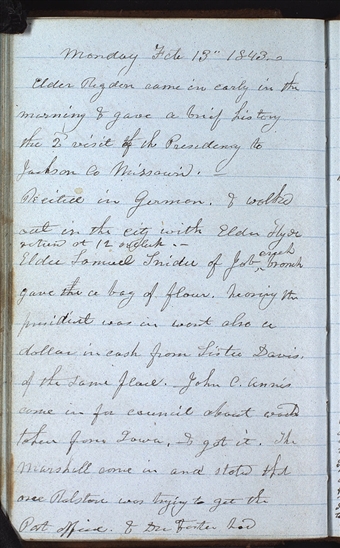 Monday Feb 13" 1843.
Elder Rigdon came in early in the
morning & gave a brief history
the 2d visit of the Presidency to
Jackson Co Missouri. —
Recited in German. & walked
out in the city with Elder Hyde
return at 12 oclock. —
Elder Samuel Snider of Job creek branch
gave the a bag of flour. hearing the
president was in want also a
dollar in cash from Sister Davis.
of the same place. John C. Annis
come in for council about wood
taken from Iowa, & got it. The
Marshall come in and stated that
one Ralston was trying to get the
Post office. & Dr Foster had